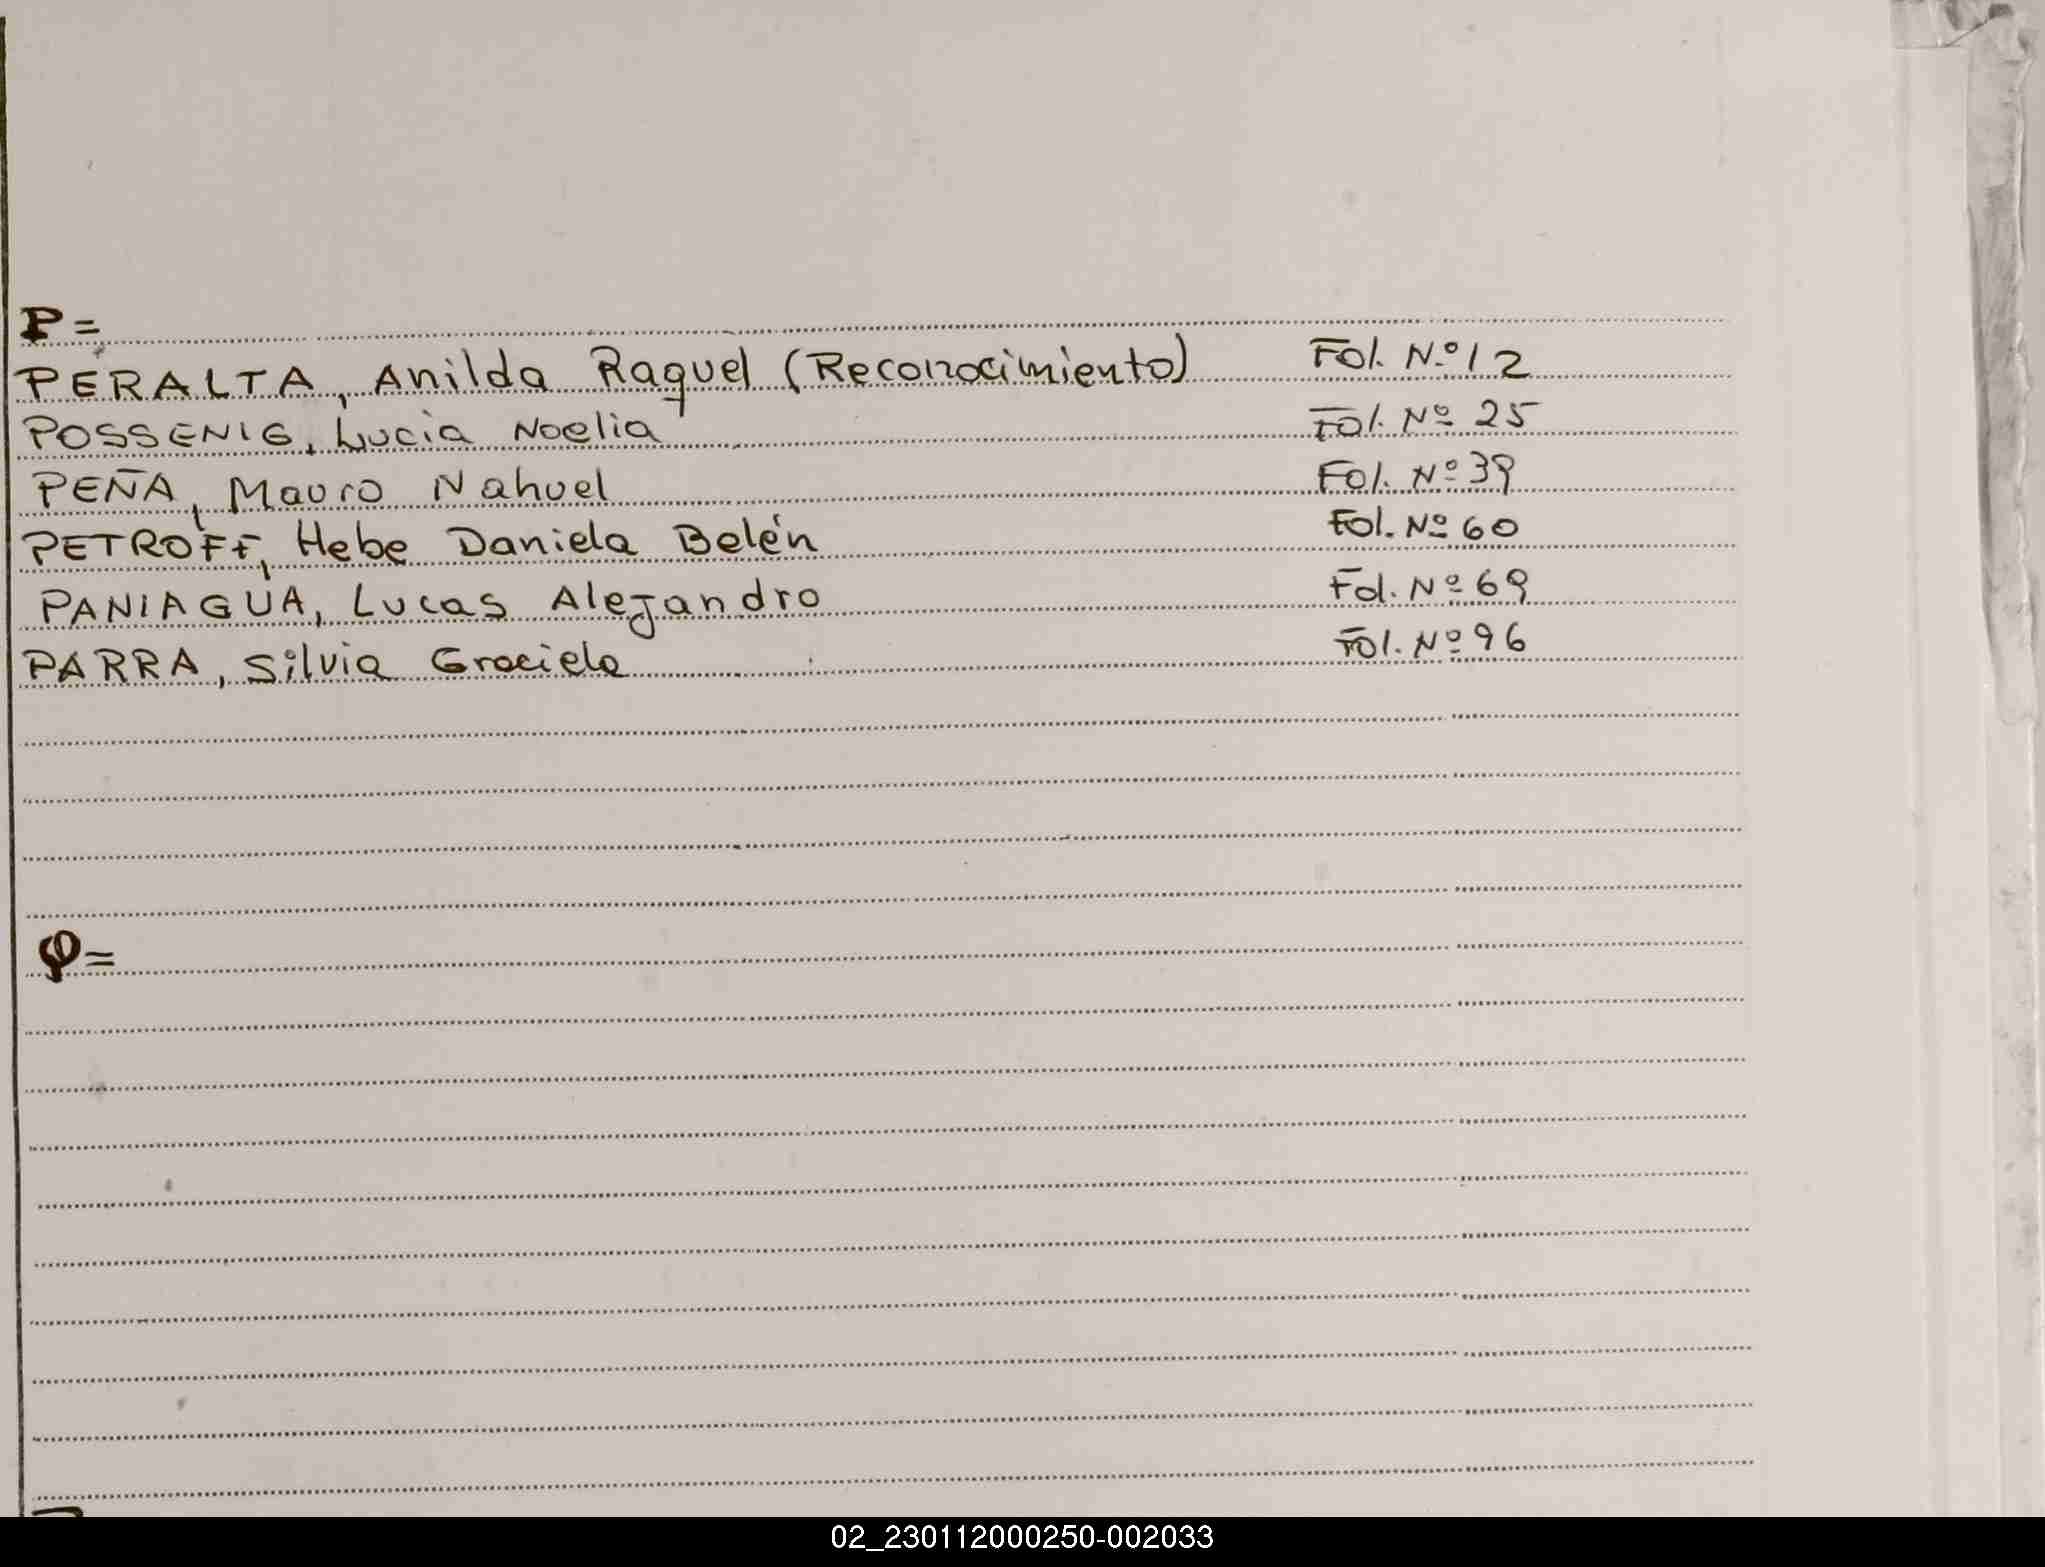 P=
PERALTA, Anilda Raquel (Reconocimiento) Fol. Nº 12
POSSENIG, Lucia Noelia Fol. Nº 25
PEÑA, Mauro Nahuel Fol. Nº 39
PETROFF, Hebe Daniela Belén Fol. Nº 60
PANIAGUA, Lucas Alejandro Fol. Nº 69
PARRA, Silvia Graciela Fol. Nº 96
Q=
02_230112000250-002033